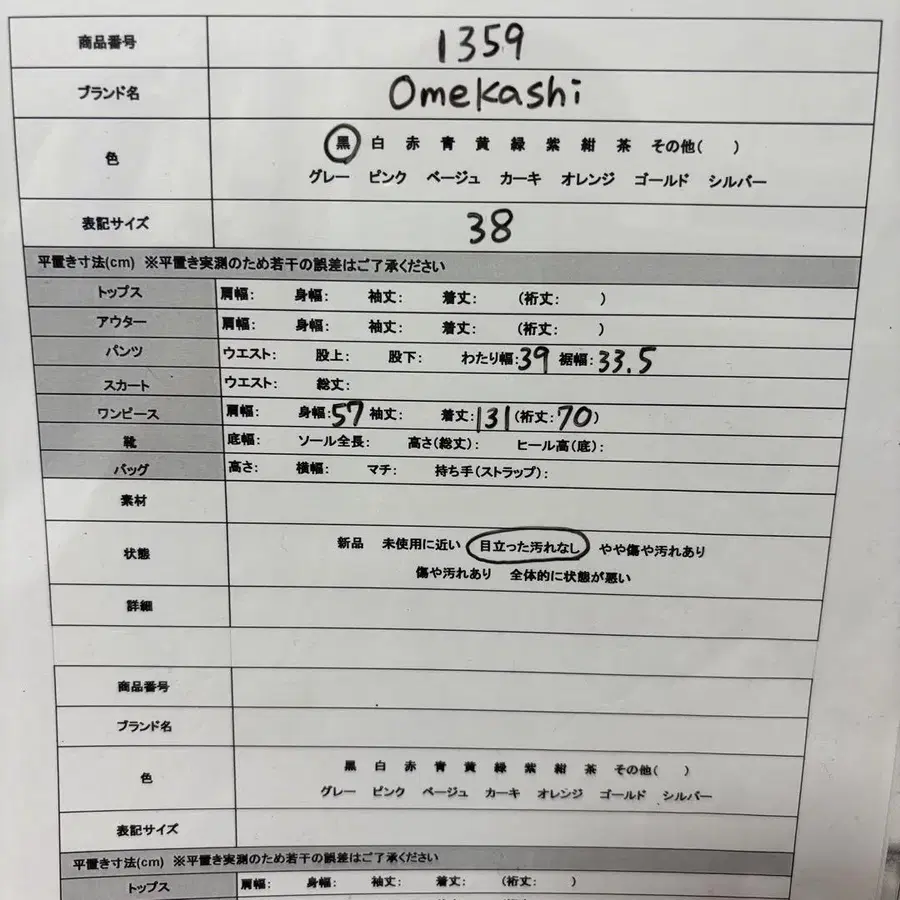 商品番号 1359
ブランド名 Omekashi
色 黒 白 赤 青 黄 緑 紫 紺 茶 その他( )
グレー ピンク ベージュ カーキ オレンジ ゴールド シルバー
表記サイズ 38
平置き寸法(cm) ※平置き実測のため若干の誤差はご了承ください
トップス 肩幅: 身幅: 袖丈: 着丈: (裄丈: )
アウター 肩幅: 身幅: 袖丈: 着丈: (裄丈: )
パンツ ウエスト: 股上: 股下: わたり幅:39 裾幅:33.5
スカート ウエスト: 総丈:
ワンピース 肩幅: 身幅:57 袖丈: 着丈:131 (裄丈:70)
靴 底幅: ソール全長: 高さ(総丈): ヒール高(底):
バッグ 高さ: 横幅: マチ: 持ち手(ストラップ):
素材
状態 新品 未使用に近い 目立った汚れなし やや傷や汚れあり
傷や汚れあり 全体的に状態が悪い
詳細
商品番号
ブランド名
色 黒 白 赤 青 黄 緑 紫 紺 茶 その他( )
グレー ピンク ベージュ カーキ オレンジ ゴールド シルバー
表記サイズ
平置き寸法(cm) ※平置き実測のため若干の誤差はご了承ください
トップス 肩幅: 身幅: 袖丈: 着丈: (裄丈: )